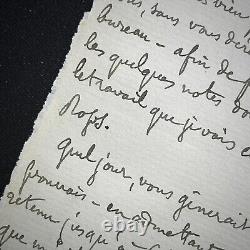 sans vous dér
bureau - afin de
les quelques notes
le travail que je vais e
Rops.
Quel jour, vous gênerais
pourrais - en admettant
retenu jusqu'à
que